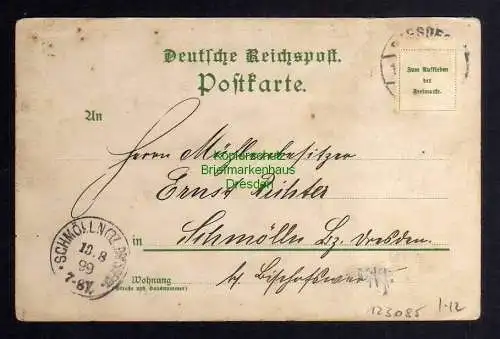 Deutsche Reichspost.
Postkarte.
DRESDEN
Zum Aufkleben
der
Freimarke.
An
Herrn Mühlenbesitzer
Ernst Richter
in Schmölln Bz. Dresden.
Wohnung
(Straße und Hausnummer)
b/ Bischofswerda
SCHMÖLLN
13.8
99
7-8V.
Kopierschutz
Briefmarkenhaus
Dresden
123085
1-12